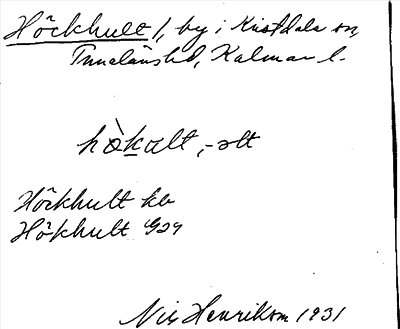 Höckhult, by i Kristdala sn,
Tunaläns hd, Kalmar l.
hòkalt, -ǝlt
Höckhult kb
Hökhult G24
Nils Henrikson 1931